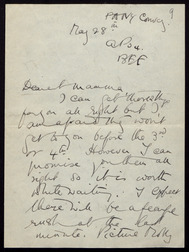 May 28th
B.E.F.
Dearest Mamma
I can get
for you all right but I
am afraid they won't
get to you before the 3rd
or 4th. However I can
promise you them all
right so it is worth
while waiting. I expect
there will be a fearful
rush at the last
minute. Picture